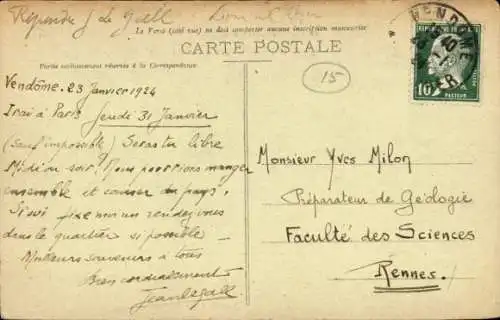 Répondre J Le Gall
Le Verso (côté vue) ne doit comporter aucune inscription manuscrite
CARTE POSTALE
Partie exclusivement réservée à la Correspondance.
VENDÔME
10
POSTES
PASTEUR
15
Vendôme. 23 Janvier 1924
Irai à Paris Jeudi 31 Janvier
(sauf impossible) Seras tu libre
Midi ou soir? Nous pourrions manger
ensemble et causer du pays.
Si oui fixe moi un rendez vous
dans le quartier si possible.
Meilleurs souvenirs à tous
Bien cordialement
Jean le Gall
Monsieur Yves Milon
Préparateur de Géologie
Faculté des Sciences
Rennes.